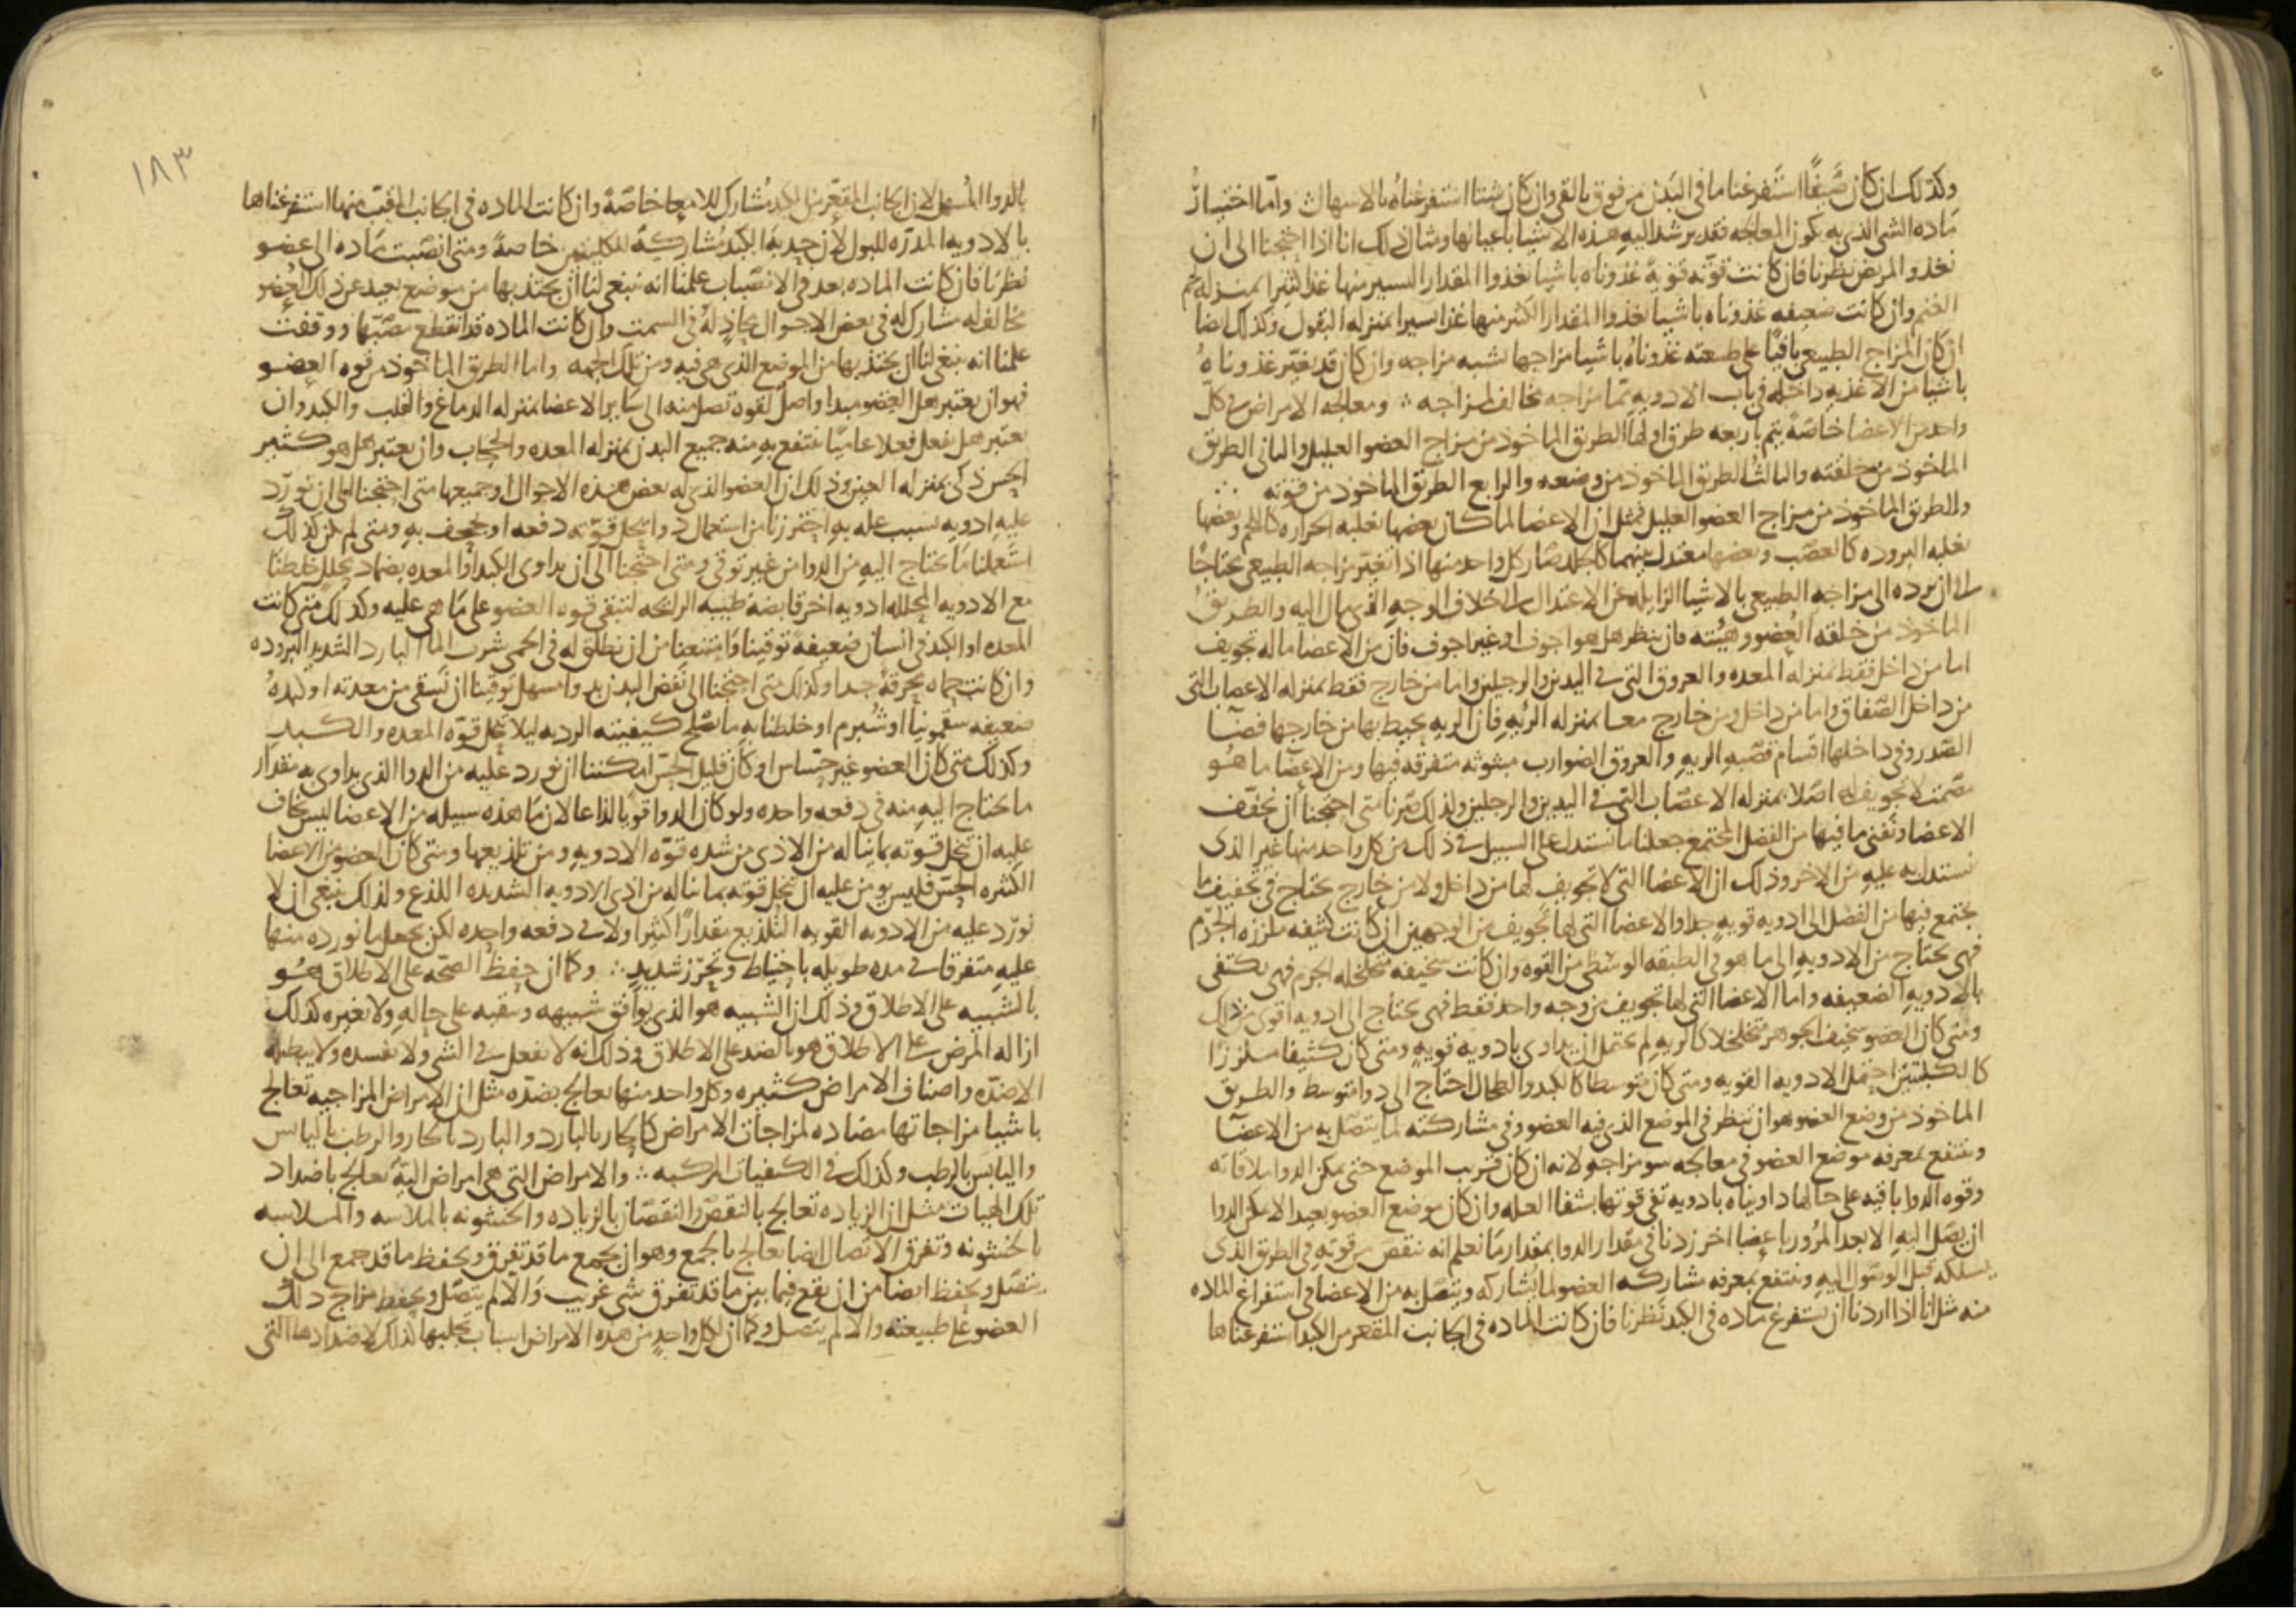 وكذلك ان كان صيفًا استفرغنا ما فى البدن من فوق بالقى وان كان شتا استفرغناه بالاسهال واما اختيار
مادة الشى الذى به يكون المعالجه فقد يرشد اليه هذه الاشيا باعيانها ومثال ذلك انا اذا احتجنا الى ان
نغذو المريض نظرنا فان كانت قوته قويه غذوناه باشيا يغذوا المقدار اليسير منها غذا كثيرا بمنزله لحم
الغنم وان كانت ضعيفه غذوناه باشيا يغذوا المقدار الكثير منها غذا يسيرا بمنزله البقول وكذلك ايضا
ان كان المزاج الطبيعى باقيًا على طبيعته غذوناه باشيا مزاجها شبيه مزاجه وان كان قد تغيّر غذوناه
باشيا من الاغذيه داخله فى باب الادويه مما مزاجه مخالف لمزاجه ∴ ومعالجه الامراض فى كل
واحد من الاعضا خاصّةً يتم باربعه طرق اولها الطريق الماخوذ من مزاج العضو العليل والثانى الطريق
الماخوذ من خلقته والثالث الطريق الماخوذ من وضعه والرابع الطريق الماخوذ من قوته
والطريق الماخوذ من مزاج العضو العليل فمثل ان الاعضا لما كان بعضها يغلبه الحراره كاللحم وبعضها
يغلبه البروده كالعصب وبعضها معتدل بينهما كالجلد صار كل واحد منها اذا تغيّر مزاجه الطبيعى محتاجًا
الى ان يرده الى مزاجه الطبيعى بالاشيا الزايله عن الاعتدال الى خلاف الوجه الذى مال اليه والطريق
الماخوذ من خلقه العضو وهيئته فان ينظر هل هو اجوف او غير اجوف فان من الاعضا ما له تجويف
اما من داخل فقط بمنزله المعده والعروق التى فى اليدين والرجلين واما من خارج فقط بمنزله الاعصاب التى
من داخل الصفاق واما من داخل ومن خارج معا بمنزله الريه فان الريه يحيط بها من خارجها فضا
الصدر وفى داخلها اقسام قصبه الريه والعروق الضوارب مبثوثه متفرقه فيها ومن الاعضا ما هو
مصمت لا تجويف له اصلا بمنزله الاعصاب التى فى اليدين والرجلين ولذلك صرنا متى احتجنا ان نجفف
الاعضا ونفنى ما فيها من الفضل المجتمع جعلنا ما نستدل على السبيل فى ذلك من كل واحد منها غير الذى
نستدل به عليه من الاخر وذلك ان الاعضا التى لا تجويف لها من داخل ولا من خارج يحتاج فى تجفيف ما
يجتمع فيها من الفضل الى ادويه قويه جدا والاعضا التى لها تجويف من الوجهين ان كانت كثيفه ملززه الجرم
فهى يحتاج من الادويه الى ما هو فى الطبقه الوسطى من القوه وان كانت سخيفه متخلخله الجرم فهى يكتفى
بالادويه الضعيفه واما الاعضا التى لها تجويف من وجه واحد فقط فهى يحتاج الى ادويه اقوى من ذلك
ومتى كان العضو سخيف الجوهر متخلخلا كالريه لم يحتمل ان يداوى بادويه قويه ومتى كان كثيفا ملززا
كالكليتين احتمل الادويه القويه ومتى كان متوسطا كالكبد والطحال احتاج الى دوا متوسط والطريق
الماخوذ من وضع العضو هو ان تنظر فى الموضع الذى فيه العضو وفى مشاركته لما يتصل به من الاعضا
وينتفع بمعرفه موضع العضو فى معالجه سو مزاجه لانه ان كان قريب الموضع حتى يمكن الدوا ملاقاته
وقوه الدوا باقيه على حالها داويناه بادويه تفى قوتها بشفا العله وان كان موضع العضو بعيدا لا يمكن الدوا
ان يصل اليه الا بعد المرور باعضا اخر زدنا فى مقدار الدوا بمقدار ما نعلم انه ينقص من قوته فى الطريق الذى
يسلكه قبل الوصول اليه وينتفع بمعرفه مشاركه العضو لما يشاركه ويتصل به من الاعضا فى استفراغ الماده
منه مثل انا اذا اردنا ان نستفرغ ماده فى الكبد نظرنا فان كانت الماده فى الجانب المقعر من الكبد استفرغناها
١٨٣
بالدوا المسهل لان الجانب المقعّر من الكبد مُشارك للامعا خاصّةً وان كانت الماده فى الجانب المقبّب منها استفرغناها
بالادويه المدرّه للبول لان حدبه الكبد مُشاركةً للكليتين خاصةً ومتى انصّبت ماده الى عضو
نظرنا فان كانت الماده بعد فى الانصباب علمنا انه ينبغى لنا ان نجتذبها من موضع بعيد عن ذلك العضو
مخالف له مشارك له فى بعض الاحوال محاذٍ له فى السمت وان كانت الماده قد انقطع مصبّها ووقفت
علمنا انه ينبغى لنا ان نجتذبها من الموضع الذى هى فيه ومن تلك الجهه واما الطريق الماخوذ من قوه العضو
فهو ان يعتبر هل العضو مبدا واصل لقوه تصل منه الى ساير الاعضا بمنزله الدماغ والقلب والكبد وان
يعتبر هل يفعل فعلا عاميًا ينتفع به منه جميع البدن بمنزله المعده والحجاب وان يعتبر هل هو كثير
الحس ذكى بمنزله العين وذلك ان العضو الذى له بعض هذه الاحوال او جميعها متى احتجنا الى ان نورد
عليه ادويه بسبب عله به احترزنا من استعمال دوا يحل قوته دفعه او يجحف به ومتى لم يكن كذلك
استعملنا ما يحتاج اليه من الدوا من غير توقى ومتى احتجنا الى ان نداوى الكبد او المعده بضماد يحلل خلطنا
مع الادويه المحلله ادويه اخر قابضه طيبه الرائحه لتبقى قوه العضو على ما هى عليه وكذلك متى كانت
المعده او الكبد فى انسان ضعيفةً توقينا وامتنعنا من ان نطلق له فى الحمى شرب الما البارد الشديد البروده
وان كانت حماه محرقةً جدا وكذلك متى احتجنا الى نفض البدن بدوا مسهل توقينا ان نسقى من معدته او كبده
ضعيفه سقمونيا او شبرم او خلطنا به ما يصلح كيفيته الرديه ليلا تحل قوه المعده والكبد
وكذلك متى كان العضو غير حساس او كان قليل الحسّ امكننا ان نورد عليه من الدوا الذى يداوى به مقدار
ما يحتاج اليه منه فى دفعه واحده ولو كان الدوا قويًا لذاعا لان ما هذه سبيله من الاعضا ليس يخاف
عليه ان تحل قوته بما يناله من الاذى من شده قوّه الادويه ومن تلذيعها ومتى كان العضو من الاعضا
الكثيره الحسّ فليس يومن عليه ان تحل قوته بما يناله من اذى الادويه الشديده اللذع ولذلك ينبغى ان لا
نورد عليه من الادويه القويه التلذيع مقدارًا كثيرا ولا فى دفعه واحده لكن يجعل ما نورده منها
عليه متفرقا فى مده طويله باحتياط وتحرّز شديد ∴ وكما ان حفظ الصحه على الاطلاق هو
بالشبيه على الاطلاق وذلك ان الشبيه هو الذى يوافق شبيهه ويبقيه على حاله ولا يغيره كذلك
ازاله المرض على الاطلاق هو بالضد على الاطلاق وذلك انه لا يفعل فى الشى ولا يفسده ولا يبطله
الا ضدّه واصناف الامراض كثيره وكل واحد منها يعالج بضدّه مثل ان الامراض المزاجيه تعالج
باشيا مزاجاتها مضاده لمزاجات الامراض كالحار بالبارد والبارد بالحار والرطب باليابس
واليابس بالرطب وكذلك فى الكيفيات المركبه ∴ والامراض التى هى امراض اليّة تعالج باضداد
تلك الهيات مثل ان الزياده تعالج بالنقص والنقصان بالزياده والخشونه بالملاسه والملاسه
بالخشونه وتفرق الاتصال ايضا يعالج بالجمع وهو ان يجمع ما قد تفرق ويحفظ ما قد جمع الى ان
يتصل ويحفظ ايضا من ان يقع فيما بين ما قد تفرق شى غريب والا لم يتصل ويحفظ مزاج ذلك
العضو على طبيعته والا لم يتصل وكما ان لكل واحد من هذه الامراض اسباب تجلبها كذلك لاضدادها التى